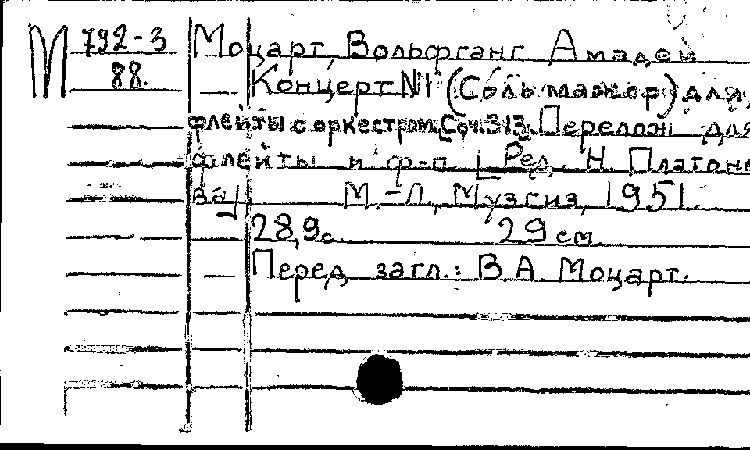 М 792-3
88.
Моцарт, Вольфганг Амадей
— Концерт №1 (Соль мажор) для
флейты с оркестром. Соч. 313. Перелож. для
флейты и ф-п. [Ред. Н. Платоно-
ва]. М.-Л., Музгиз, 1951.
28,9 с. 29 см.
— Перед загл.: В.А. Моцарт.